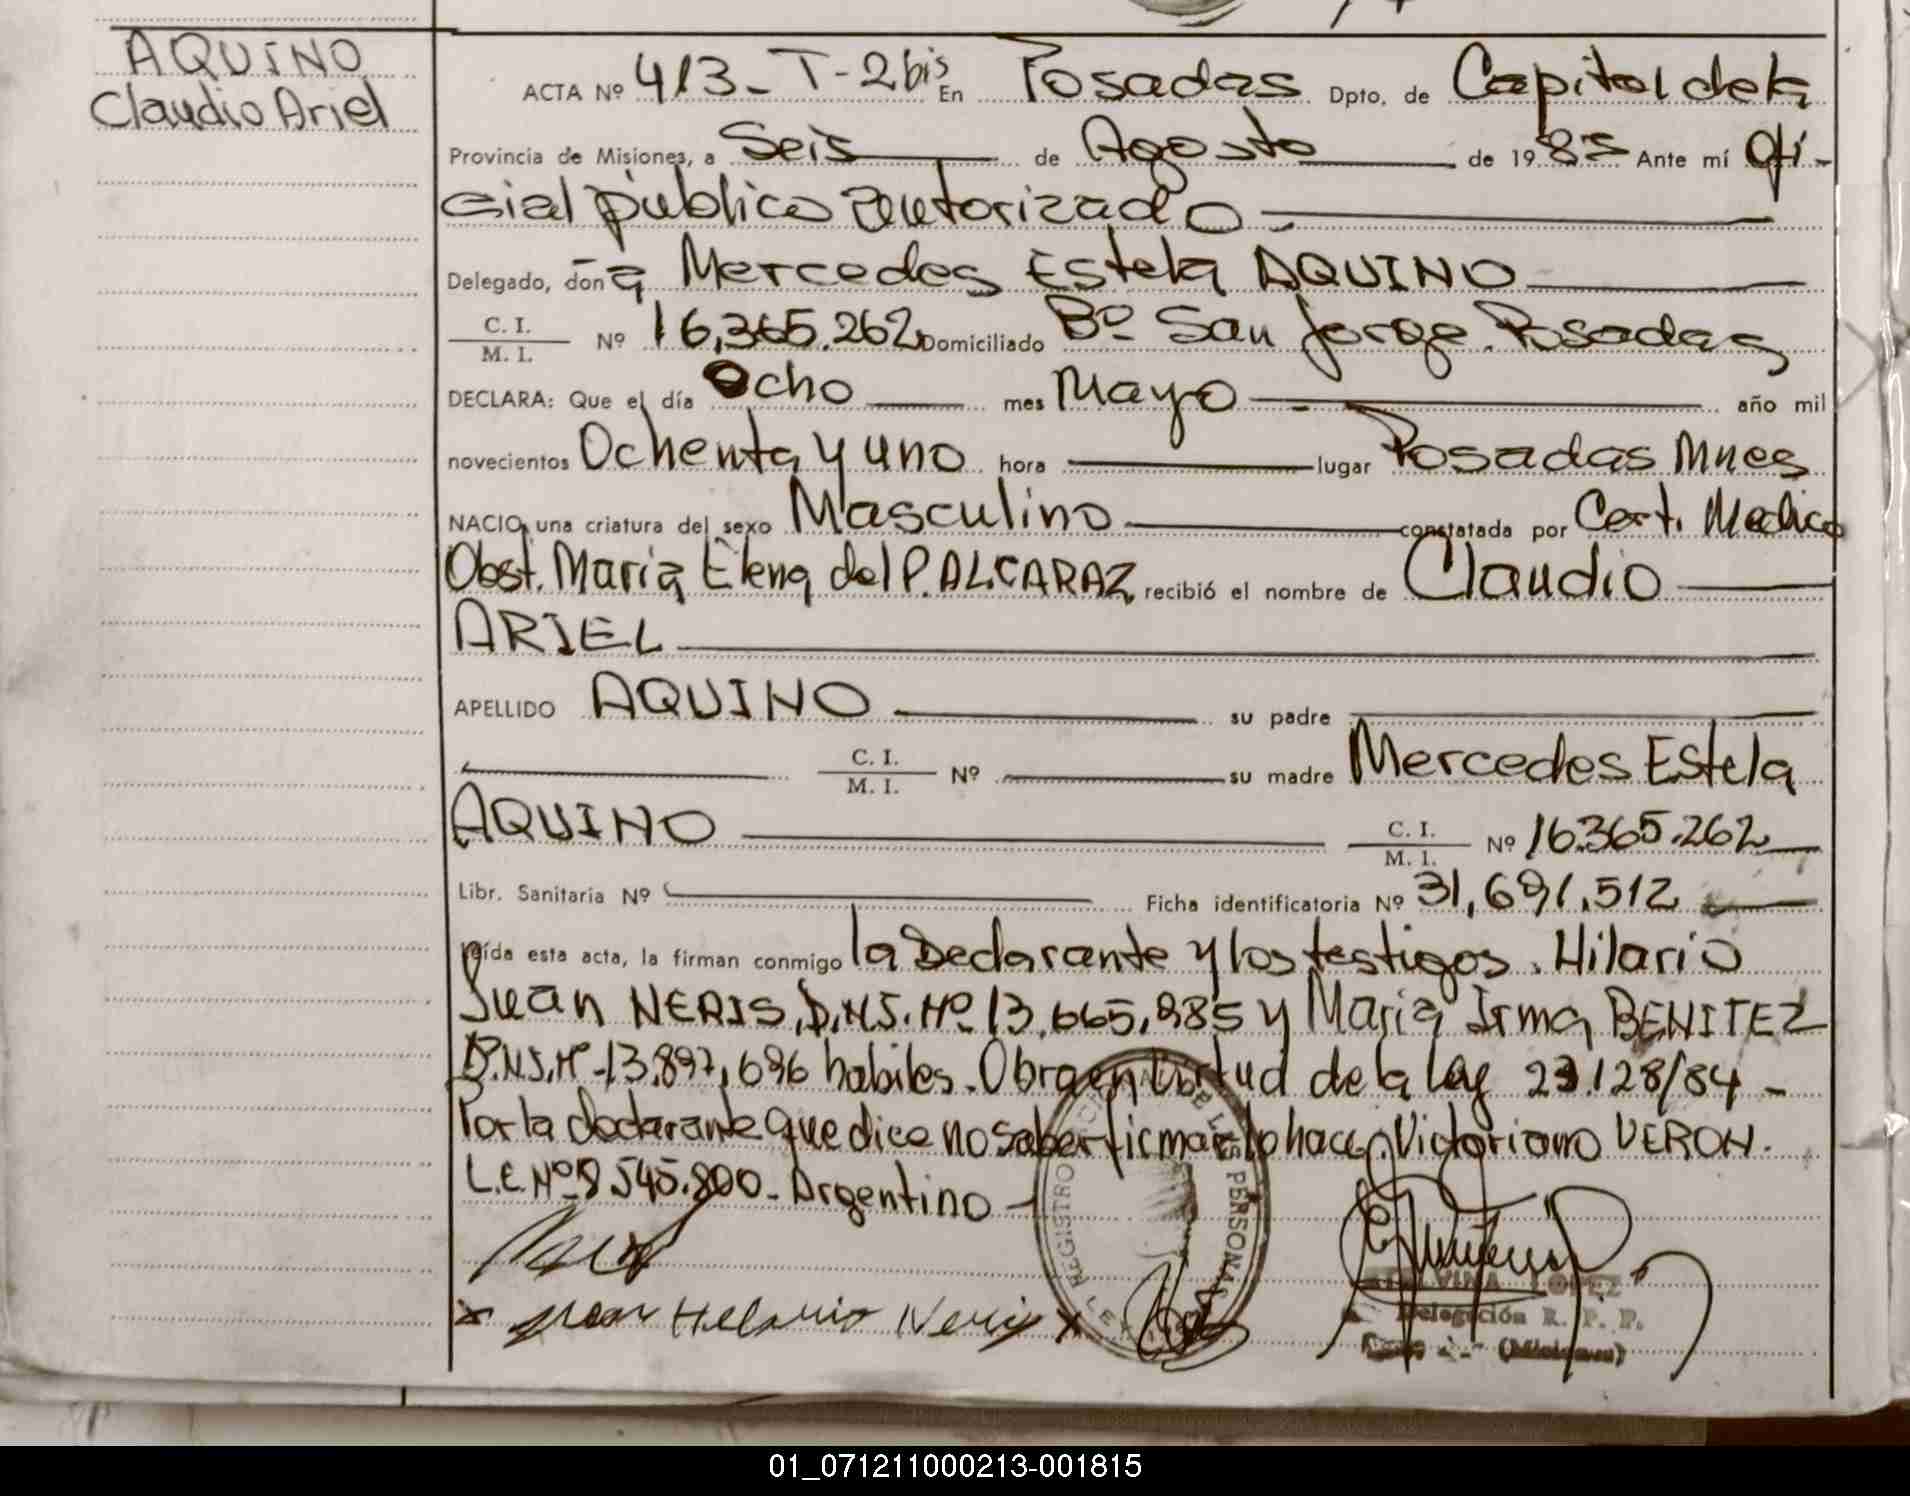 AQUINO
Claudio Ariel
ACTA Nº 413- T-2bis En Posadas Dpto. de Capital de la
Provincia de Misiones, a Seis de Agosto de 1985 Ante mí ofi-
cial público autorizado
Delegado, doña Mercedes Estela AQUINO
C. I. / M. I. Nº 16,365.262 Domiciliado Bº San Jorge. Posadas
DECLARA: Que el día Ocho mes Mayo año mil
novecientos Ochenta y uno hora lugar Posadas Mnes
NACIO, una criatura del sexo Masculino constatada por Cert. Medico
Obst. Maria Elena del P. ALCARAZ, recibió el nombre de Claudio
ARIEL
APELLIDO AQUINO su padre
C. I. / M. I. Nº su madre Mercedes Estela
AQUINO C. I. / M. I. Nº 16.365.262
Libr. Sanitaria Nº Ficha identificatoria Nº 31,691,512
Leída esta acta, la firman conmigo la Declarante y los testigos. Hilario
Juan NERIS, D.N.I. Nº 13.665,985 y Maria Irma BENITEZ
D.N.I. Nº-13.897,696 habiles. Obra en virtud de la ley 23.128/84-
Por la declarante que dice no saber firmar lo hace, Victoriano VERON.
L.E. Nº-8.545.800- Argentino-
x Juan Helario Neris x
REGISTRO DE LAS PERSONAS
LOPEZ
Delegación R. P. P.
(Misiones)
01_071211000213-001815